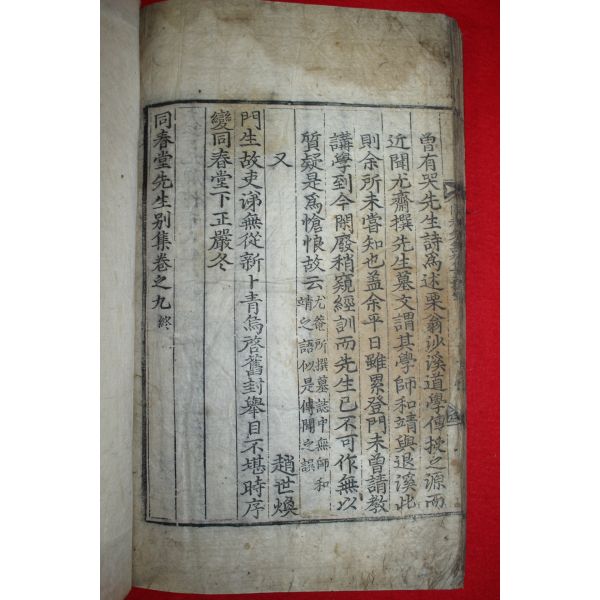 曾有哭先生詩爲述栗翁沙溪道學傳授之源而
近聞尤齋撰先生墓文謂其學師和靖與退溪此
則余所未嘗知也盖余平日雖累登門未曾請教
講學到今閑廢稍窺經訓而先生已不可作無以
質疑是爲愴恨故云尤菴所撰墓誌中無師和
靖之語似是傳聞之誤
又 趙世煥
門生故吏涕無從新卜青烏啓舊封舉目不堪時序
變同春堂下正嚴冬
同春堂先生別集卷之九 終